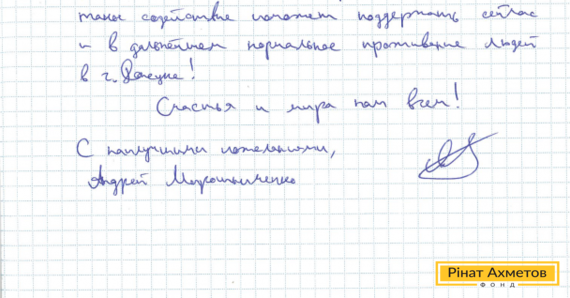 такое содействие поможет поддержать сейчас
и в дальнейшем нормальное проживание людей
в г. Донецке!
Счастья и мира нам всем!
С наилучшими пожеланиями,
Андрей Мирошниченко
Рінат Ахметов
ФОНД